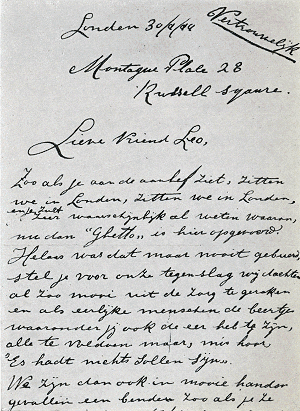 Vertrouwelijk
Londen 30/9/99
Montague Place 28
Russell sqaure.
Lieve Vriend Leo,
Zoo als je aan de aanhef ziet, zitten
we in Londen, zitten we in Londen,
en je zult zeer waarschijnlijk al weten waarom,
nu dan "Ghetto" is hier opgevoerd
Helaas was dat maar nooit gebeurd,
stel je voor onze tegenslag wij dachten
al zoo mooi uit de zorg te geraken
en als eerlijke menschen de beertjes
waaronder jij ook de eer hebt te zijn,
alle te voldoen maar, mis hoor
"Es hadt nichts sollen sijn".
We zijn dan ook in mooie handen
gevallen een benden zoo als je ze